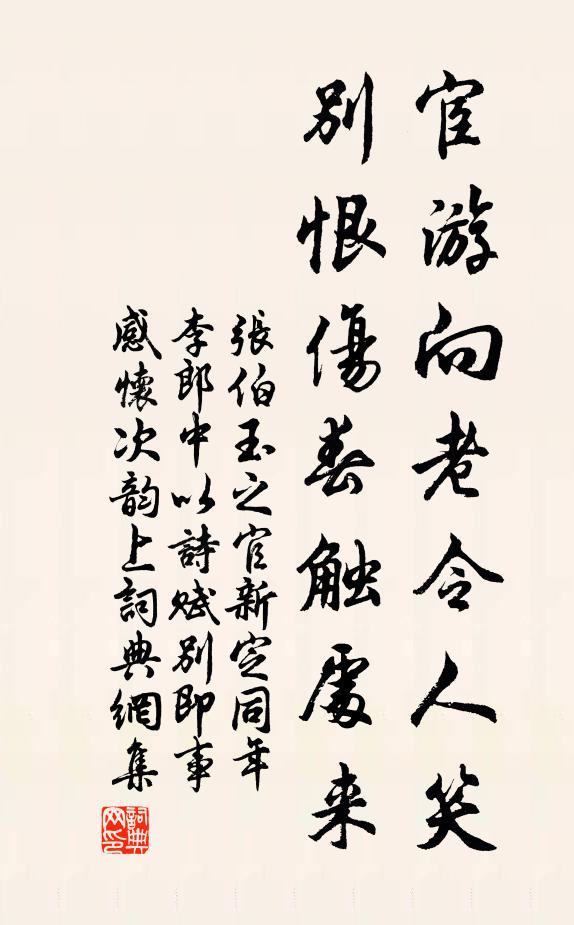 宦游向老令人笑
别恨傷春触處来
張伯玉之官新定同年
李郎中以詩賦别即事
感懷次韵上詞典網集
詞典网印